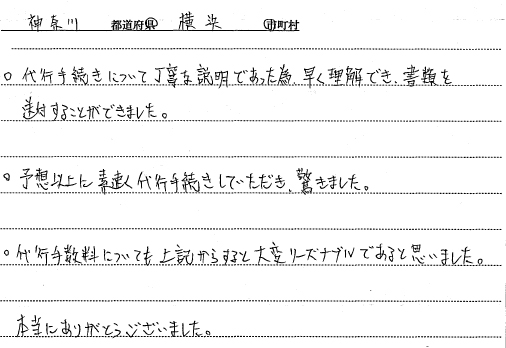 神奈川 都道府県 横浜 市町村
○ 代行手続きについて丁寧な説明であった為、早く理解でき、書類を
送付することができました。
○ 予想以上に素速く代行手続きしていただき、驚きました。
○ 代行手数料についても上記からすると大変リーズナブルであると思いました。
本当にありがとうございました。